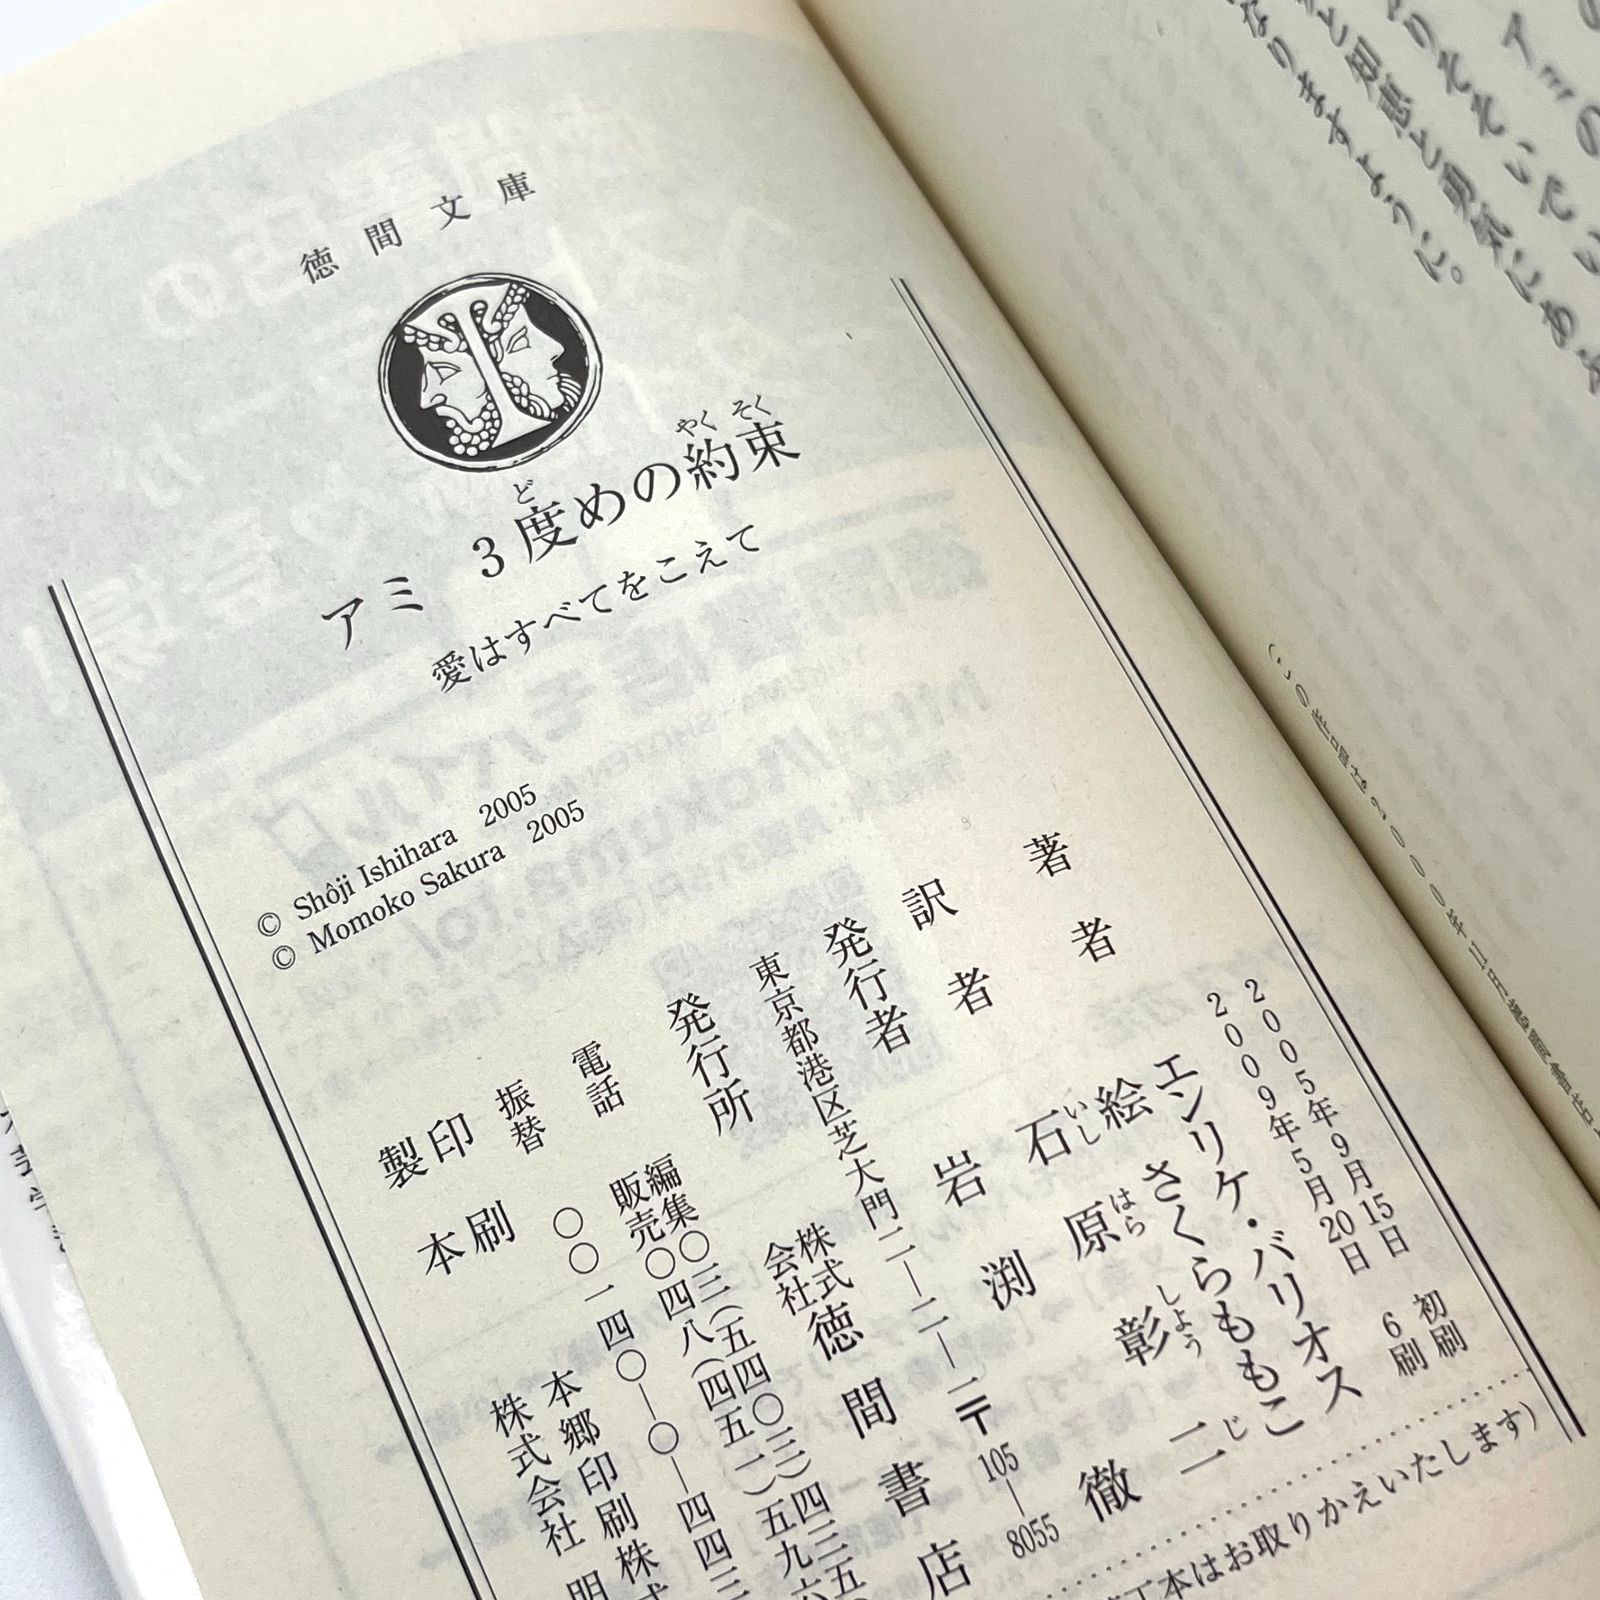 徳間文庫
アミ 3度めの約束
ど
やくそく
愛はすべてをこえて
© Shôji Ishihara 2005
© Momoko Sakura 2005
2005年9月15日 初刷
2009年5月20日 6刷
著者 エンリケ・バリオス
絵 さくらももこ
訳者 石原彰二
いし はら しょう じ
発行者 岩渕徹
東京都港区芝大門二―二―一〒105―8055
発行所 株式会社徳間書店
電話 編集〇三(五四〇三)四三五
販売〇四八(四五一)五九六
振替 〇〇一四〇―〇―四四三
印刷 本郷印刷株式
製本 株式会社
本はお取りかえいたします)
アミの
りそそいでい
と知恵と勇気にあふ
なりますように。